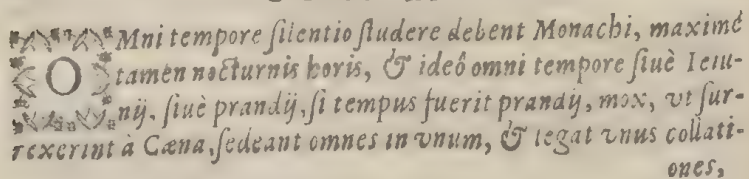 OMni tempore silentio studere debent Monachi, maximé
tamen nocturnis horis, & ideô omni tempore siuè Ieiu-
nij, siuè prandij, si tempus fuerit prandij, mox, vt sur-
rexerint à Cæna, sedeant omnes in vnum, & legat vnus collati-
ones,